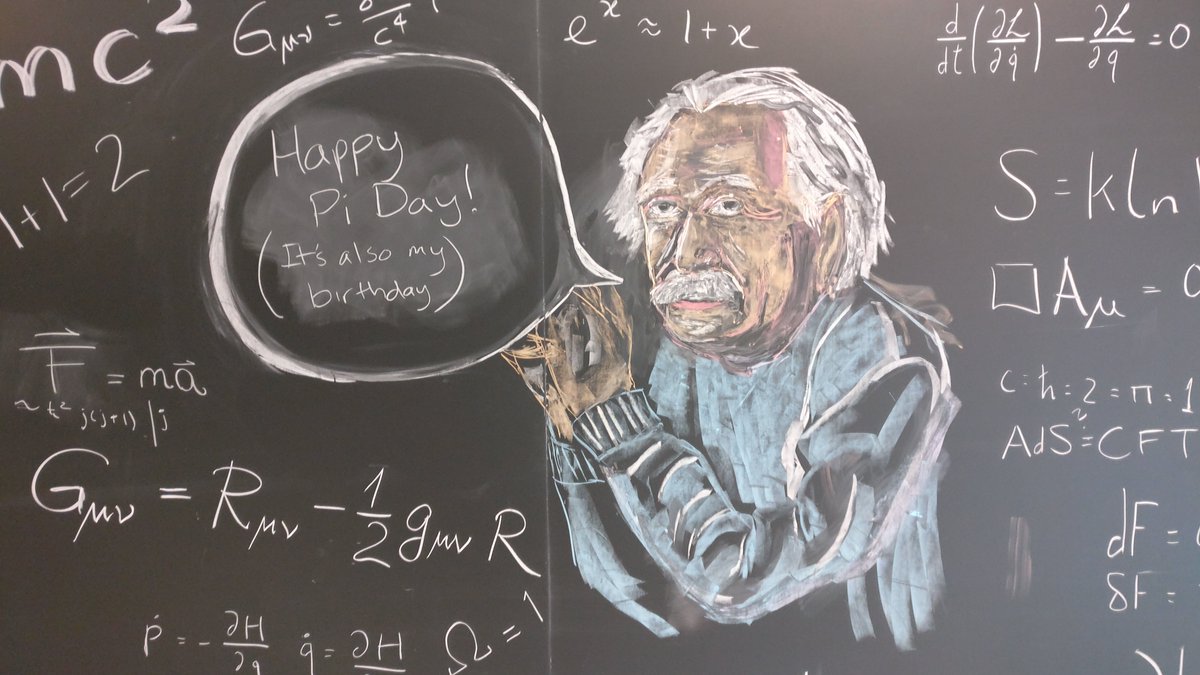 mc²
G_μν = 8 / c⁴
e^x ≈ 1 + x
d/dt (∂L/∂q̇) − ∂L/∂q = 0
1+1=2
Happy
Pi Day!
(It's also my
birthday)
S = k ln
□A_μ = 0
F⃗ = ma⃗
j(j+1) |j
c=ħ=2=π=1
AdS=CFT
G_μν = R_μν − 1/2 g_μν R
dF =
δF =
ṗ = − ∂H/∂q q̇ = ∂H
Ω = 1